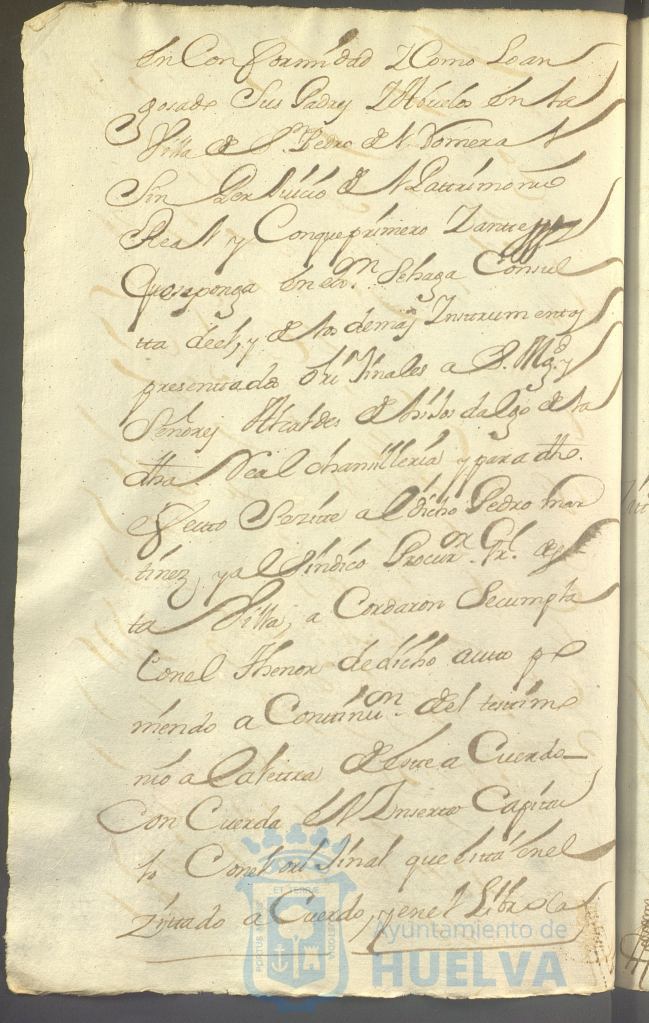 en Conformidad Z Como Loan
gosado Sus Padres Z Abuelos en la
Villa de Sn. Pedro de N.
Sin Perjuicio del Patrimonio
Real y Conque primero Zante
Que se ponga en econ. Sehaga Consul
tta deel, y de los demas Instrumentos
presentados orijinales a S. Mgd. y
Señores Alcaldes de hijos dalgo de la
dha. Real chanzilleria y para dho.
efecto Sezitte al dicho Pedro mar
tinez, y al Sindico Procuror. Grl. de es
ta Villa, a Cordaron Secumpla
Conel Thenor de dicho autto po
niendo a Continuon. del testimo
nio a la letra de este a Cuerdo
Con Cuerda el Inserto Capitu
lo Conel orijinal que está en el
Zittado a Cuerdo, y en el Libro Ca
ET TERRAE
Ayuntamiento de
HUELVA